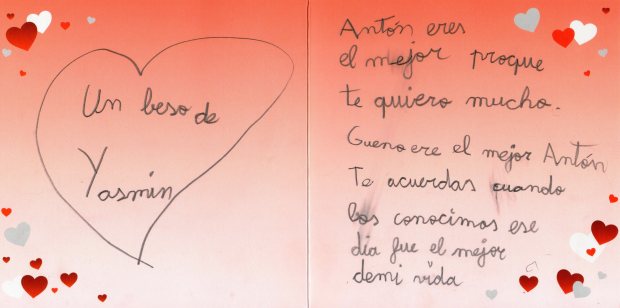 Un beso de
Yasmin
Antón eres
el mejor proque
te quiero mucho.
Gueno ere el mejor Antón
Te acuerdas cuando
los conocimos ese
dia fue el mejor
demi vida